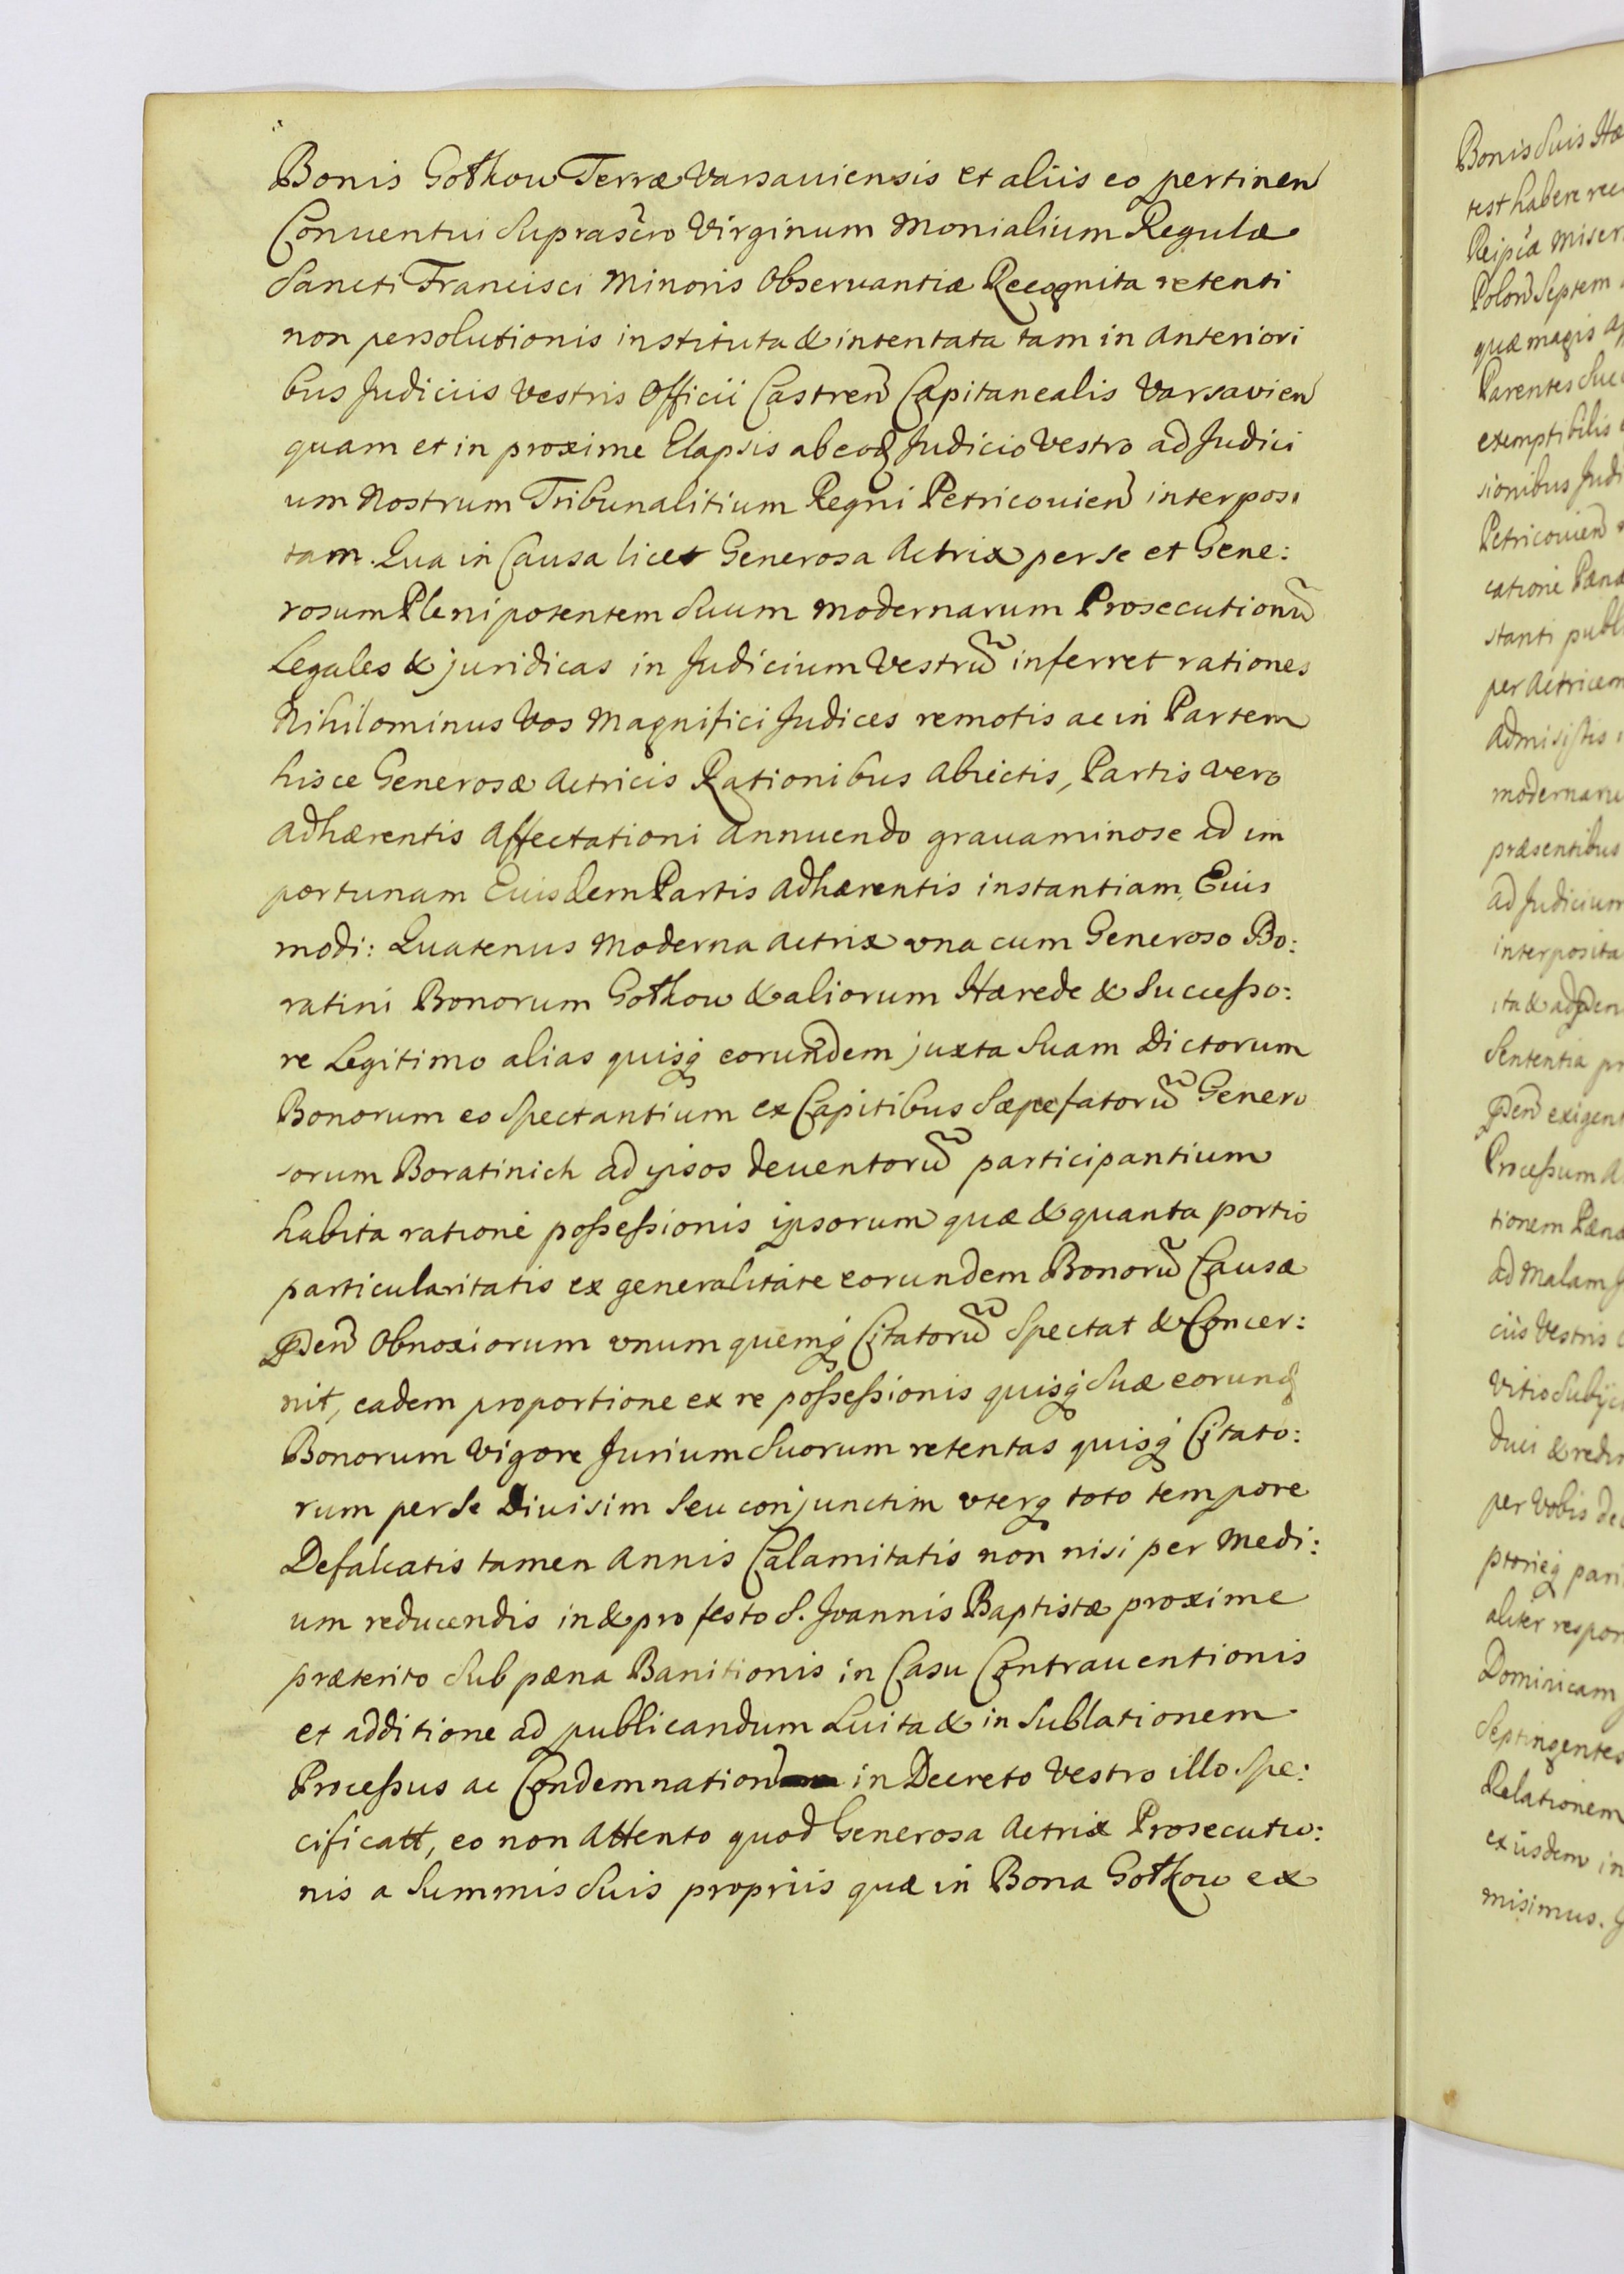 Bonis Gothow Terræ Varsauiensis et aliis eo pertinen̄
Conuentui Suprascr̄o Virginum Monialium Regulæ
Sancti Francisci Minoris Obseruantiæ Recognita retenti
non persolutionis instituta & intentata tam in Anteriori
bus Judiciis Vestris Officii Castren̄ Capitanealis Varsavien̄
quam et in proxime Elapsis ab eod Judicio Vestro ad Judici
um Nostrum Tribunalitium Regni Petricouien̄ interposi
tam. Qua in Causa licet Generosa Actrix per se et Gene:
rosum Plenipotentem Suum modernarum Prosecutionū
Legales & juridicas in Judicium Vestrū inferret rationes
Nihilominus Vos Magnifici Judices remotis ac in Partem
hisce Generosæ Actricis Rationibus Abiectis, Partis vero
Adhærentis Affectationi Annuendo grauaminose ad im
portunam Euisdem Partis Adhærentis instantiam, Euis
modi: Quatenus Moderna Actrix vna cum Generoso Bo:
ratini Bonorum Gothow & aliorum Hærede & Successo:
re Legitimo alias quisq eorundem juxta Suam Dictorum
Bonorum eo Spectantium ex Capitibus Sæpefatorū Genero
sorum Boratinich ad ipsos deuentorū participantium
habita ratione possessionis ipsorum quæ & quanta portio
particularitatis ex generalitate eorundem Bonorū Causæ
Pden̄ Obnoxiorum vnumquemq Citatorū Spectat & Concer:
nit, eadem proportione ex re possessionis quisq Suæ eorund
Bonorum Vigore Jurium Suorum retentas quisq Citato:
rum per se Diuisim Seu conjunctim vterq toto tempore
Defalcatis tamen Annis Calamitatis non nisi per Medi:
um reducendis in & pro festo S. Joannis Baptistæ proxime
præterito Sub pæna Banitionis in Casu Contrauentionis
et additione ad publicandum Luita & in Sublationem
Processus ac Condemnation̄ in Decreto Vestro illo Spe:
cificatt, eo non Attento quod Generosa Actrix Prosecutio:
nis a Summis Suis propriis quæ in Bona Gothow ex
Bonis Suis
test habere
Polon̄ Septem
quæ magis
Parentes
exemptibilis
sionibus
Petricouien̄
catione Pænæ
stanti
per Actricem
Admisistis
præsentibus
ad Judicium
interposita
Sententia
Pden̄
Processum
tionem
ad Malam
ciis Vestris
per Vobis
aliter
Dominicam
Relationem
exiisdem
misimus.